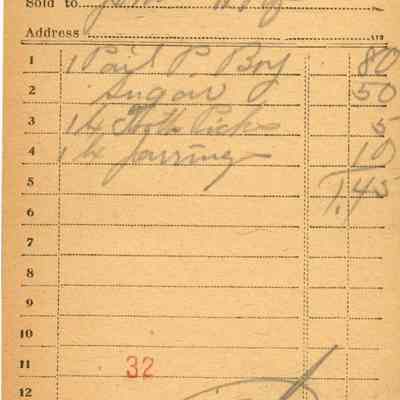 Sold to
Address
1 1 Pail P. Boy 80
2 Sugar 50
3 1 Tooth Picks 5
4 1 Jar rings 10
5 1.45
6
7
8
9
10
11 32
12